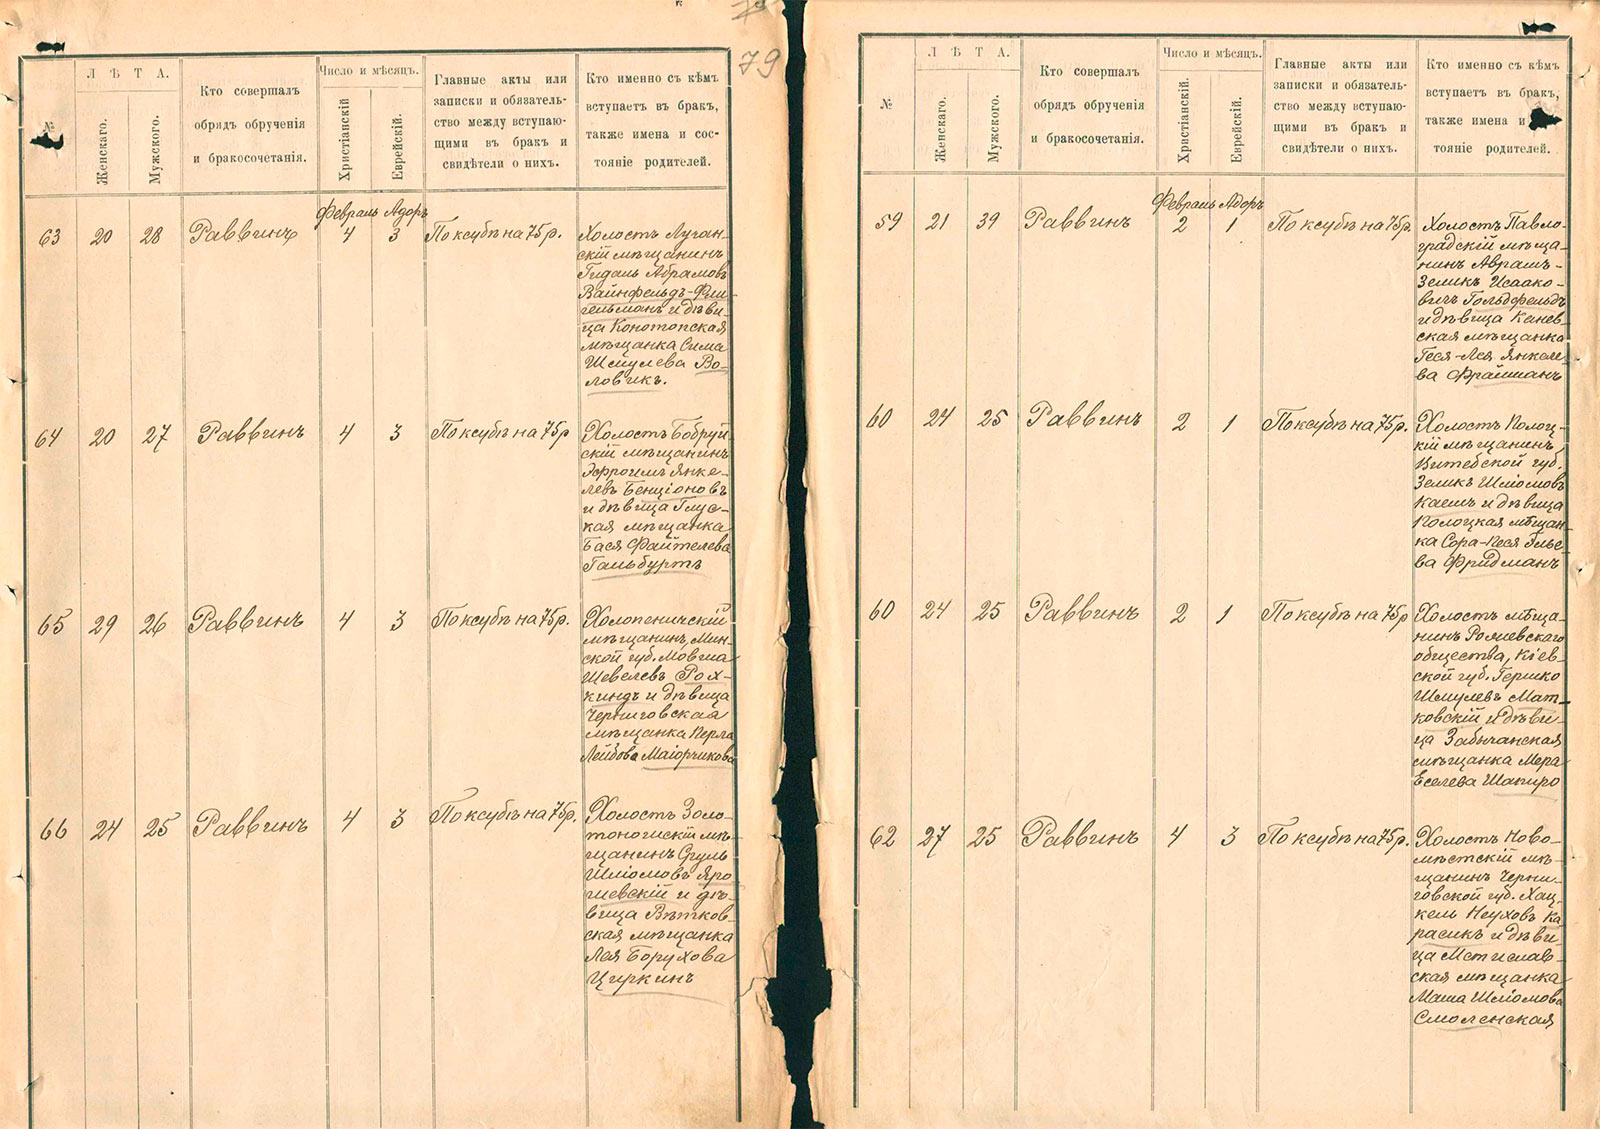 79
№
ЛѢТА.
Женскаго.
Мужского.
Кто совершалъ
обрядъ обрученія
и бракосочетанія.
Число и мѣсяцъ.
Христіанскій
Еврейскій.
Главные акты или
записки и обязатель-
ство между вступаю-
щими въ бракъ и
свидѣтели о нихъ.
Кто именно съ кѣмъ
вступаетъ въ бракъ,
также имена и сос-
тояніе родителей.
Февраль Адоръ
63 20 28 Раввинъ 4 3 По ксубѣ на 75 р.
Холостъ Луган-
скій мѣщанинъ
Гидаль Абрамовъ
Вайнфельдъ-Фли-
гельманъ и дѣви-
ца Конотопская
мѣщанка Сима
Шмулева Во-
ловикъ.
64 20 27 Раввинъ 4 3 По ксубѣ на 75 р
Холостъ Бобруй-
скій мѣщанинъ
Эфроимъ Янке-
левъ Бенціоновъ
и дѣвица Глус-
кая мѣщанка
Бася Файтелева
Гальбуртъ
65 29 26 Раввинъ 4 3 По ксубѣ на 75 р.
Холопеничскій
мѣщанинъ, Мин-
ской губ. Мовша
Шевелевъ Рох-
киндъ и дѣвица
Черниговская
мѣщанка Перла
Лейбова Маіорчикова
66 24 25 Раввинъ 4 3 По ксубѣ на 75 р.
Холостъ Золо-
тоношскій мѣ-
щанинъ Сруль
Шліомовъ Яро-
шевскій и дѣ-
вица Вѣтков-
ская мѣщанка
Лея Борухова
Циркинъ
№
ЛѢТА.
Женскаго.
Мужского.
Кто совершалъ
обрядъ обрученія
и бракосочетанія.
Число и мѣсяцъ.
Христіанскій.
Еврейскій.
Главные акты или
записки и обязатель-
ство между вступаю-
щими въ бракъ и
свидѣтели о нихъ.
Кто именно съ кѣмъ
вступаетъ въ бракъ,
также имена и
тояніе родителей.
Февраль Адоръ
59 21 39 Раввинъ 2 1 По ксубѣ на 75 р.
Холостъ Павло-
градскій мѣща-
нинъ Аврамъ-
Зеликъ Исаако-
вичъ Гольдфельдъ
и дѣвица Канев-
ская мѣщанка
Геся-Лея Янкеле-
ва Фрайманъ
60 24 25 Раввинъ 2 1 По ксубѣ на 75 р.
Холостъ Полоц-
кій мѣщанинъ
Витебской губ.
Зеликъ Шліомовъ
Каемъ и дѣвица
Полоцкая мѣщан-
ка Сора-Песя Гилье-
ва Фридманъ
60 24 25 Раввинъ 2 1 По ксубѣ на 75 р
Холостъ мѣща-
нинъ Ролиевскаго
общества, Кіев-
ской губ. Гершко
Шмулевъ Мат-
ковскій и дѣви-
ца Забычанская
мѣщанка Мера
Еселева Шапиро
62 27 25 Раввинъ 4 3 По ксубѣ на 75 р.
Холостъ Ново-
мѣстскій мѣ-
щанинъ Черни-
говской губ. Хац-
кель Неуховъ Ка
расикъ и дѣви-
ца Мстислав-
ская мѣщанка
Маша Шліомова
Смоленская